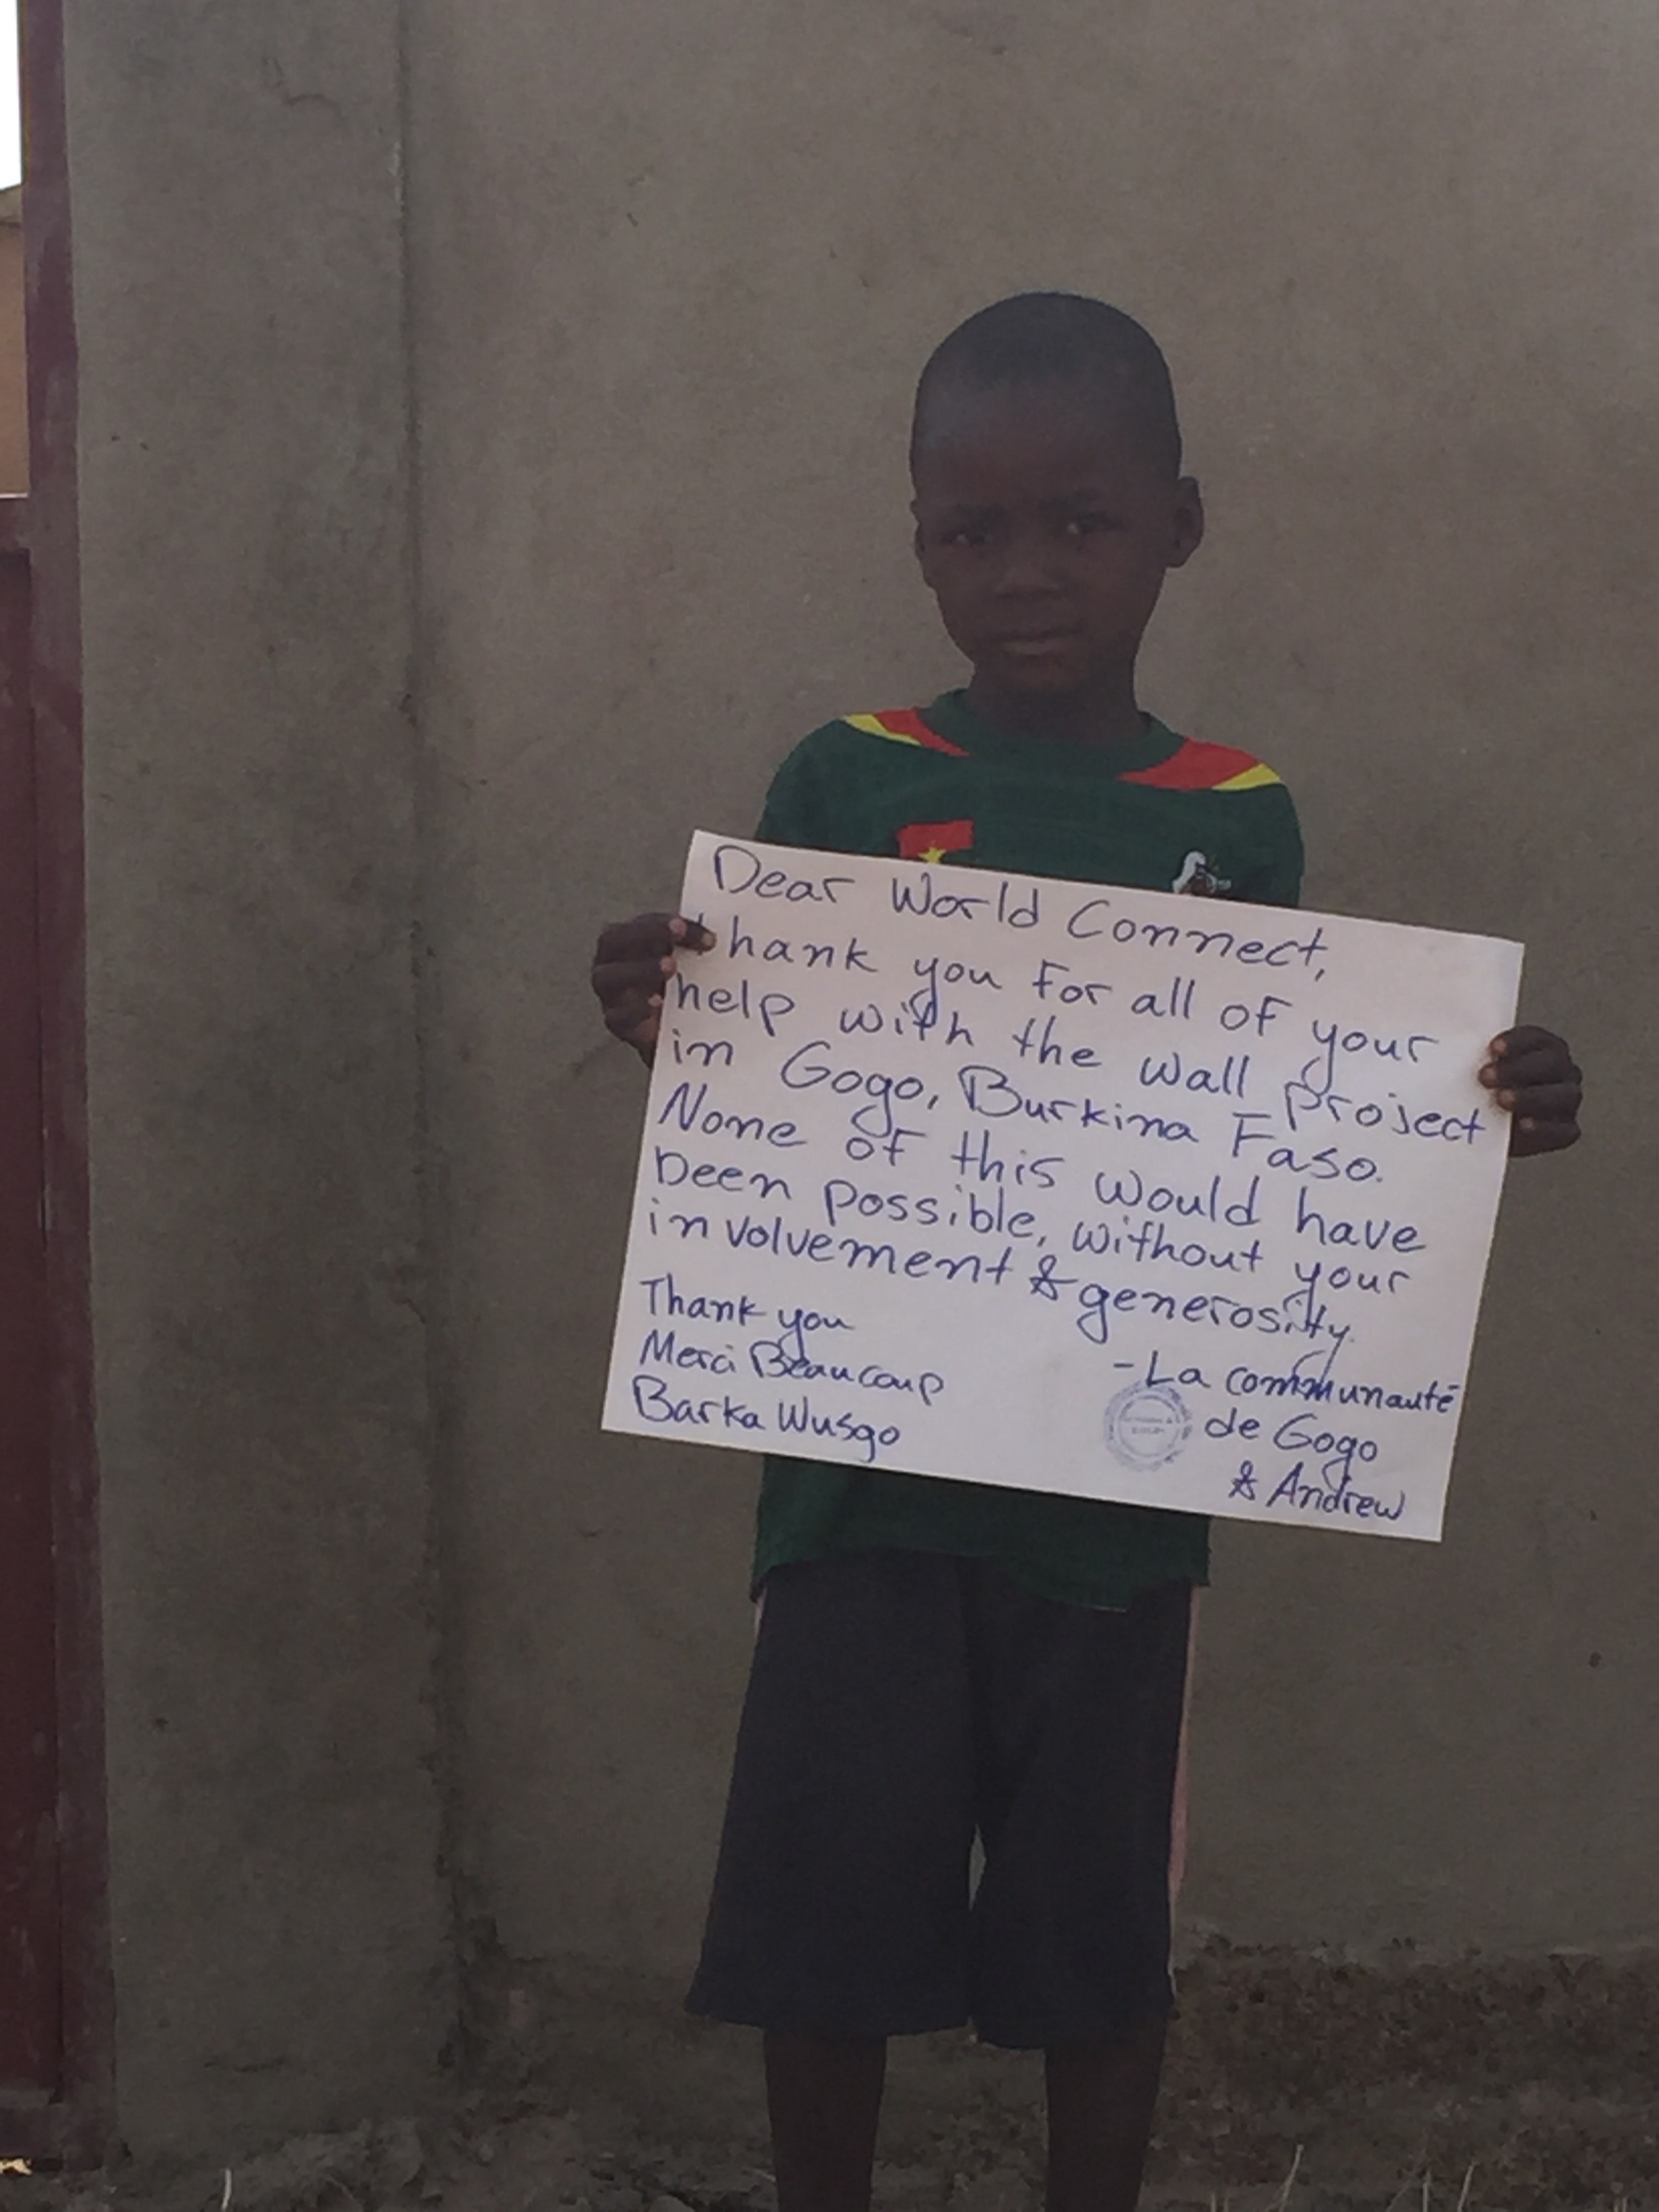 Dear World Connect,
thank you for all of your
help with the wall project
in Gogo, Burkina Faso.
None of this would have
been possible, without your
involvement & generosity.
Thank you
Merci Beaucoup
Barka Wusgo
-La communauté
de Gogo
& Andrew